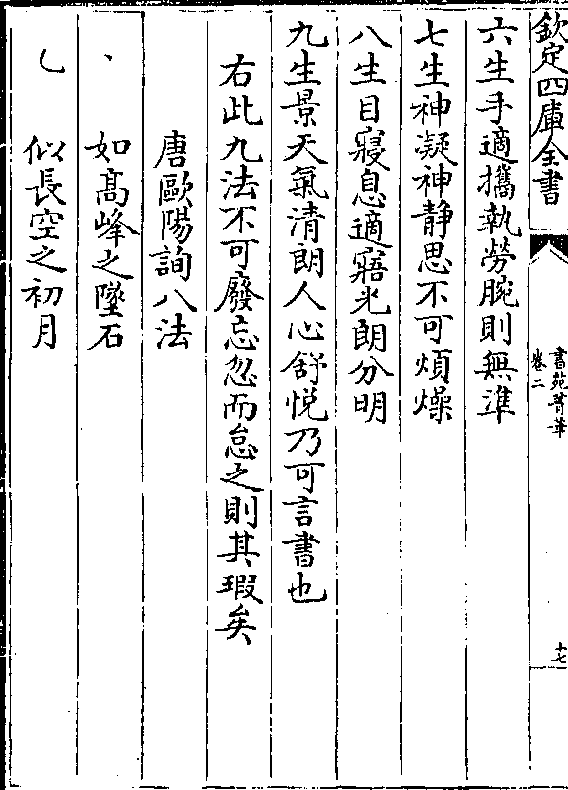 欽定四庫全書
書苑菁華
卷二
十七
六生手適攜執勞腕則無準
七生神凝神靜思不可煩燥
八生目寢息適寤光朗分明
九生景天氣清朗人心舒悅乃可言書也
右此九法不可廢忘忽而怠之則其瑕矣
唐歐陽詢八法
丶如髙峰之墜石
乚似長空之初月